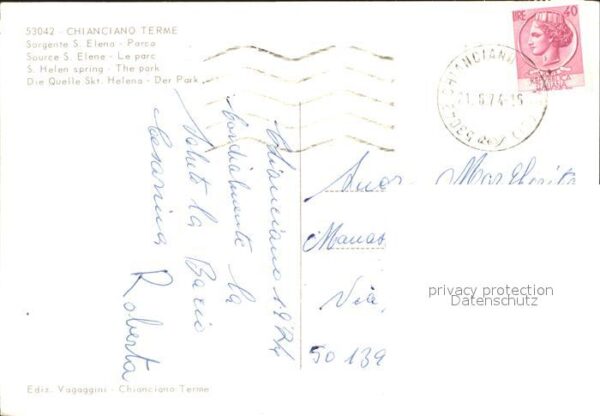 53042 - CHIANCIANO TERME
Sorgente S. Elena - Parco
Source S. Elene - Le parc
S. Helen spring - The park
Die Quelle Skt. Helena - Der Park
LIRE 40
REPUBBLICA
ITALIANA
CHIANCIANO
.6.74-16
Chianciano 1974
Cordialmente la
Saluto la Bacio
Cesarina Roberta
Margherita
Manas
Via,
50139
privacy protection
Datenschutz
Ediz. Vagaggini - Chianciano Terme